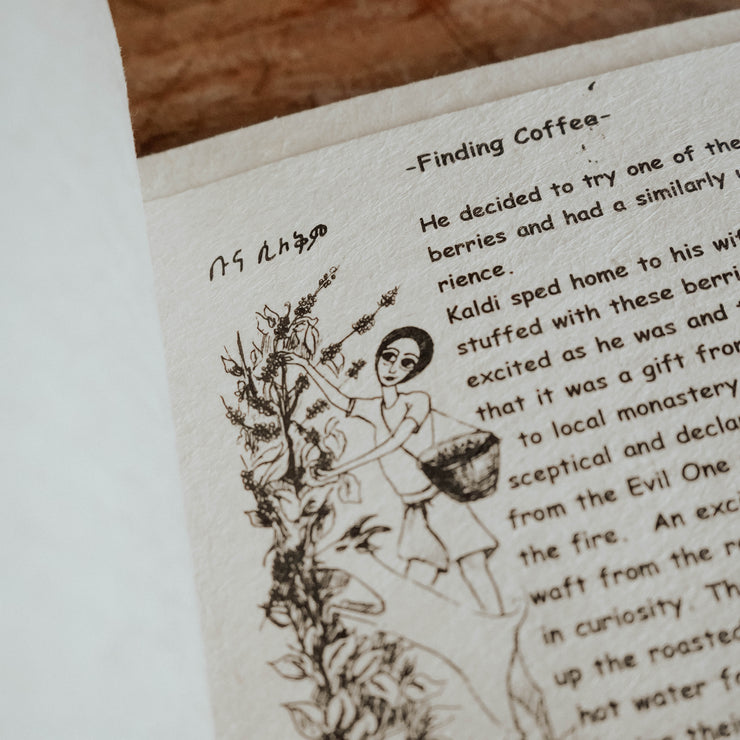 -Finding Coffee-
ቡና ሲለቀም
He decided to try one of the
berries and had a similarly
rience.
Kaldi sped home to his
stuffed with these
excited as he was and
that it was a gift
to local monastery
sceptical and
from the Evil One
the fire. An
waft from the
in curiosity.
up the roasted
hot water